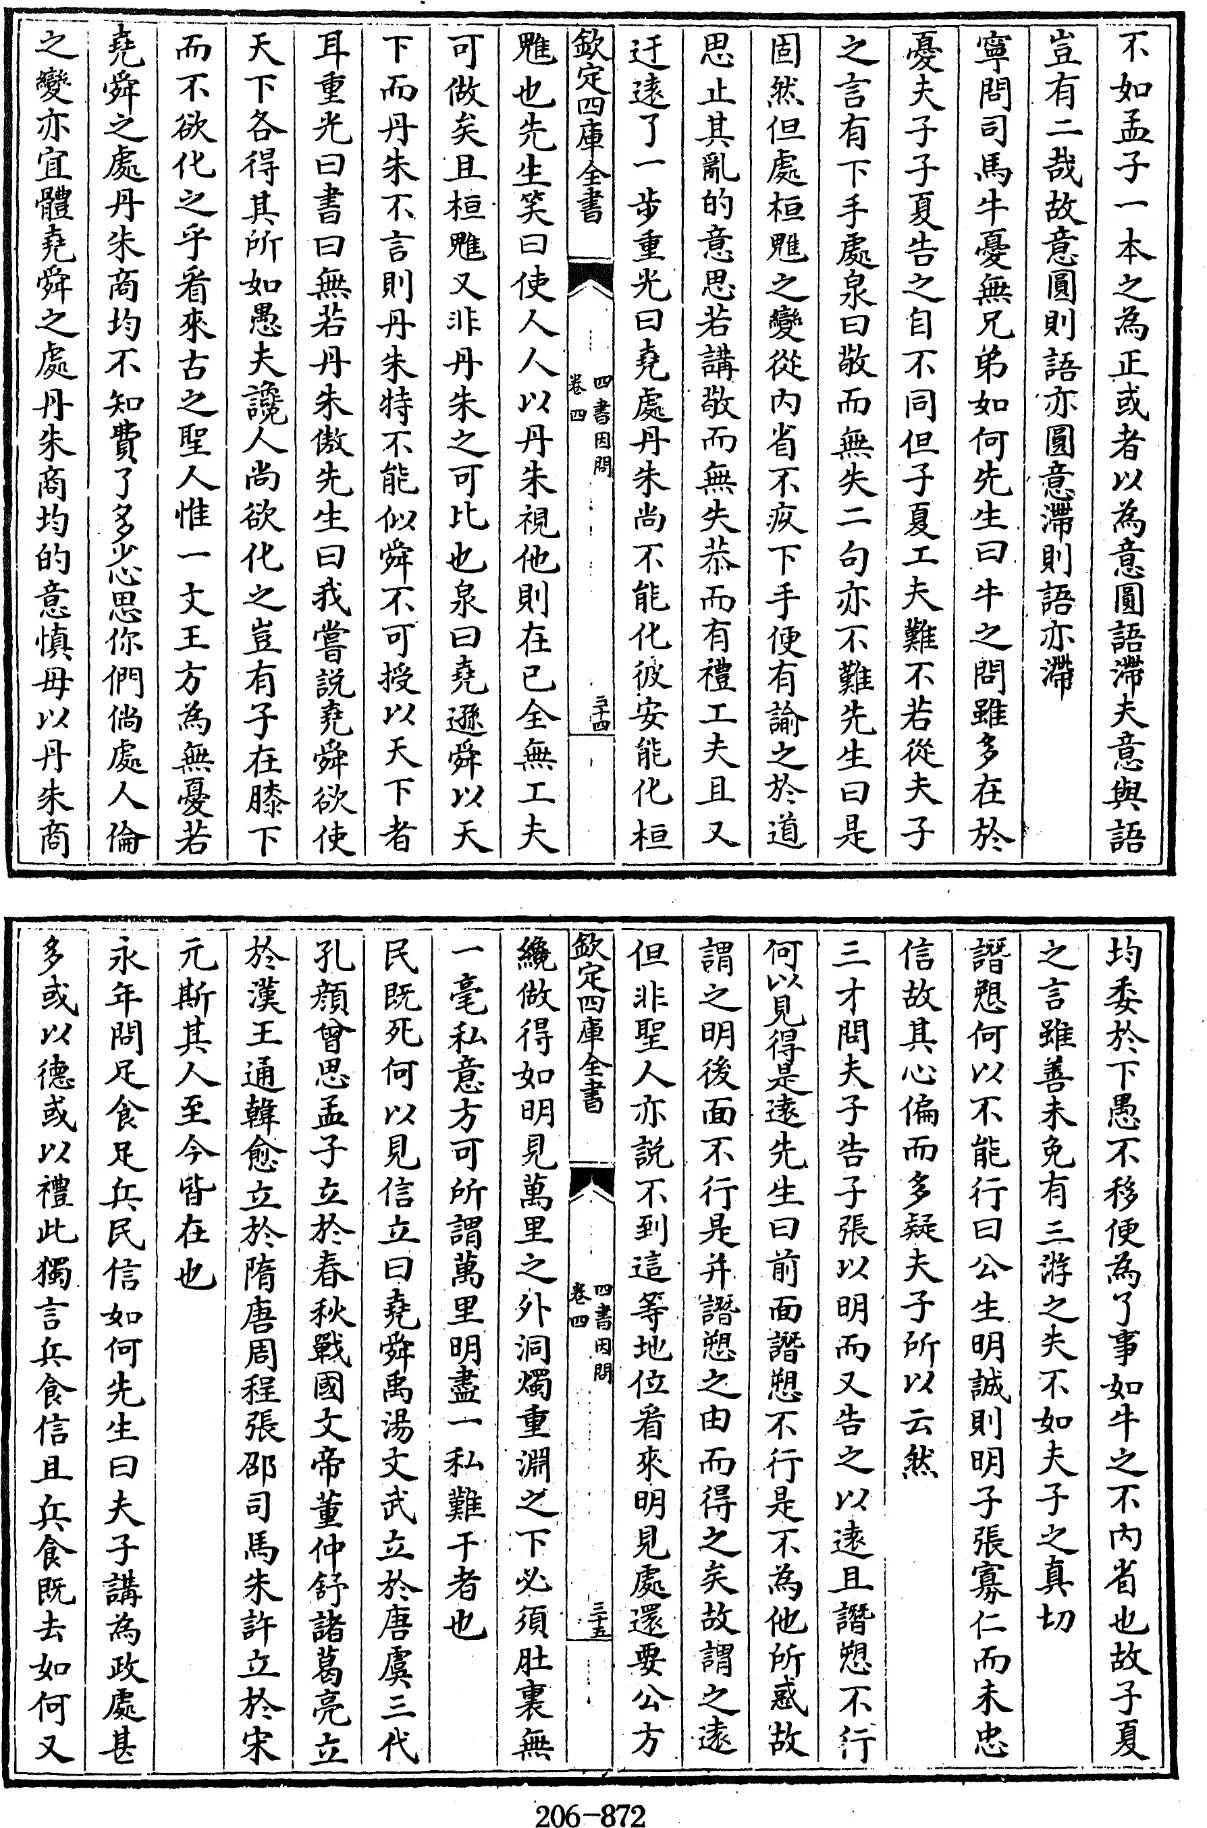 不如孟子一本之為正或者以為意圓語滯夫意與語
豈有二哉故意圓則語亦圓意滯則語亦滯
寧問司馬牛憂無兄弟如何先生曰牛之問雖多在於
憂夫子子夏告之自不同但子夏工夫難不若從夫子
之言有下手處泉曰敬而無失二句亦不難先生曰是
固然但處桓魋之變從内省不疚下手便有諭之於道
思止其亂的意思若講敬而無失恭而有禮工夫且又
迂遠了一步重光曰堯處丹朱尚不能化彼安能化桓
欽定四庫全書
四書因問
卷四
三十四
魋也先生笑曰使人人以丹朱視他則在已全無工夫
可做矣且桓魋又非丹朱之可比也泉曰堯遜舜以天
下而丹朱不言則丹朱特不能似舜不可授以天下者
耳重光曰書曰無若丹朱傲先生曰我嘗説堯舜欲使
天下各得其所如愚夫讒人尚欲化之豈有子在膝下
而不欲化之乎看來古之聖人惟一文王方為無憂若
堯舜之處丹朱商均不知費了多少心思你們倘處人倫
之變亦宜體堯舜之處丹朱商均的意慎毋以丹朱商
均委於下愚不移便為了事如牛之不内省也故子夏
之言雖善未免有三游之失不如夫子之真切
譖愬何以不能行曰公生明誠則明子張寡仁而未忠
信故其心偏而多疑夫子所以云然
三才問夫子告子張以明而又告之以遠且譖愬不行
何以見得是遠先生曰前面譖愬不行是不為他所惑故
謂之明後面不行是并譖愬之由而得之矣故謂之遠
但非聖人亦説不到這等地位看來明見處還要公方
欽定四庫全書
四書因問
卷四
三十五
纔做得如明見萬里之外洞燭重淵之下必須肚裏無
一毫私意方可所謂萬里明盡一私難干者也
民既死何以見信立曰堯舜禹湯文武立於唐虞三代
孔顔曾思孟子立於春秋戰國文帝董仲舒諸葛亮立
於漢王通韓愈立於隋唐周程張邵司馬朱許立於宋
元斯其人至今皆在也
永年問足食足兵民信如何先生曰夫子講為政處甚
多或以德或以禮此獨言兵食信且兵食既去如何又
206-872